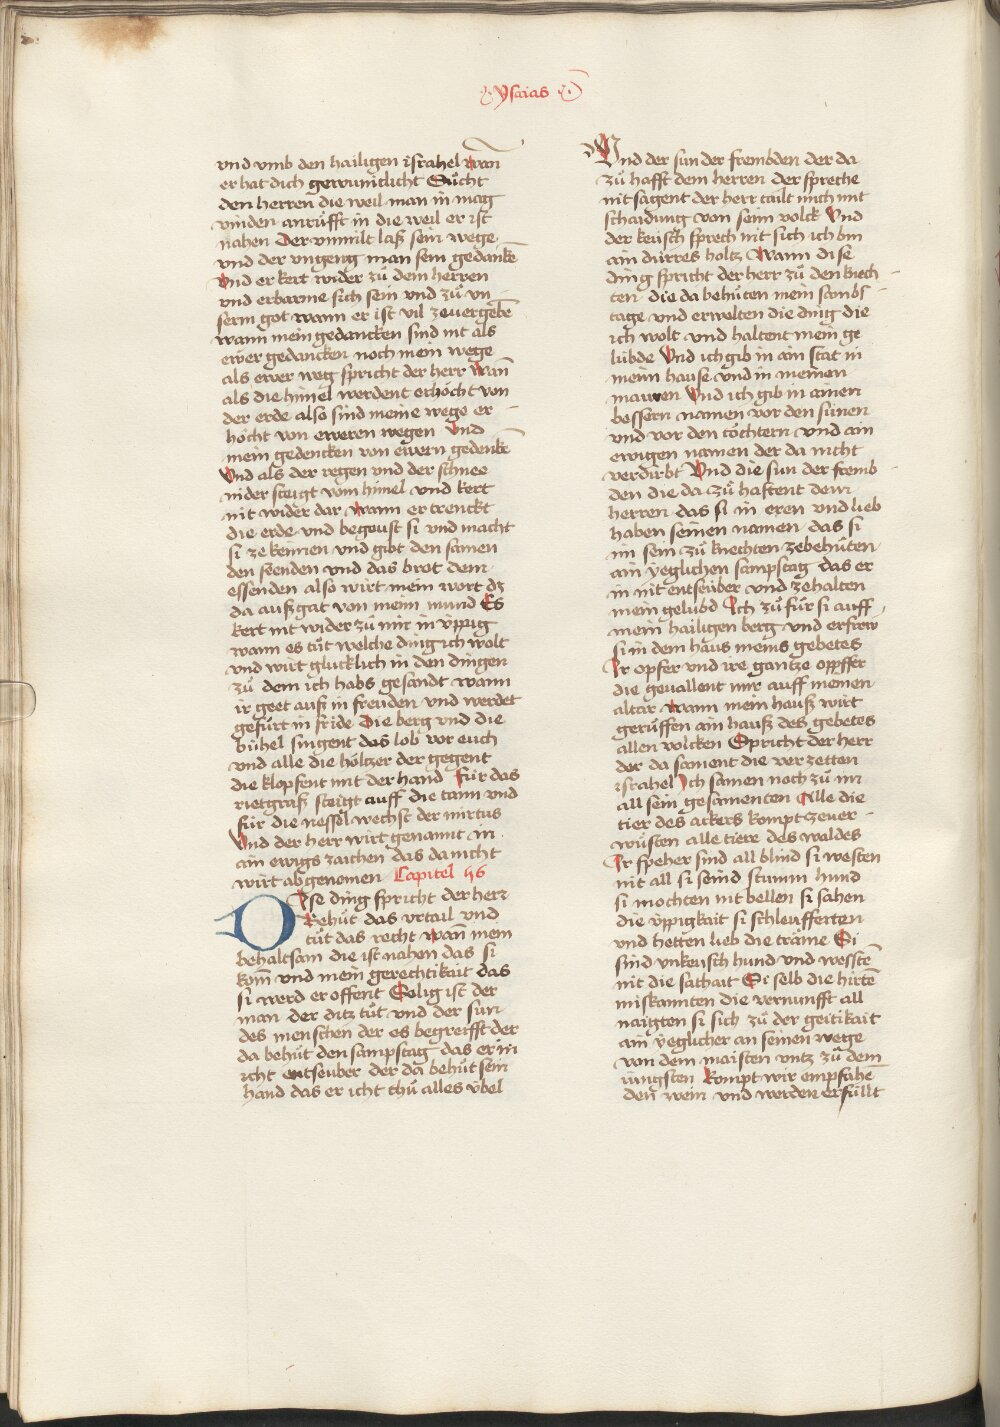 Ysaias
vnd vmb den hailigen israhel wañ
er hat dich gewunnclicht Sůcht
den herren die weil man in mag
vinden anrüfft in die weil er ist
nahen Der vnmilt laß sein wege
vnd der vngeng man sein gedankē
Vnd er kert wider zů dem herren
vnd erbarme sich sein vnd zů vn
serm got wann er ist vil ze uergebē
wann mein gedancken sind nit als
ewer gedancken noch mein wege
als ewer weg spricht der herr wañ
als die himel werdent erhöcht von
der erde also sind meine wege er
höcht von eweren wegen Vnd
mein gedencken von ewern gedenkē
Vnd als der regen vnd der schnee
nider steigt vom himel vnd kert
nit wider dar wann er trenckt
die erde vnd begeust si vnd macht
si ze keimen vnd gibt den samen
den seenden vnd das brot dem
essenden also wirt mein wort dz
da außgat von meim mund Es
kert nit wider zů mir in v̈ppig
wann es tůt welche ding ich wolt
vnd wirt glucklich in den dingen
zů dem ich habs gesandt wann
ir geet auß in freuden vnd werdet
gefürt in fride Die berg vnd die
bühel singent das lob vor euch
vnd alle die höltzer der gegent
die klopfent mit der hand Für das
rietgraß steigt auff die tann vnd
für die nessel wechst der mirtus
Vnd der herr wirt genannt in
ain ewigs zaichen das da nicht
wirt abgenomen Capitel 56
Dise ding spricht der herz
Behüt das vrtail vnd
tůt das recht wañ mein
behaltsam die ist nahen das si
kom̄ vnd mein gerechtikait das
si werd eroffent Selig ist der
man der ditz tůt vnd der sun
des menschen der es begreifft der
da behüt den sampstag das er in
icht entseuber der da behüt sein
hand das er icht thů alles v̈bel
Vnd der sun der frembden der da
zů hafft dem herren der spreche
nit sagent der herr tailt mich mit
schaidung von seim volck Vnd
der keusch sprech nit sich ich bin
ain dürres holtz Wann dise
ding spricht der herr zů den knech
ten die da behüten mein sambs
tage vnd erwelten die ding die
ich wolt vnd haltent mein ge
lübde Vnd ich gib in ain stat in
meim hause vnd in meinen
mauren Vnd ich gib in ainen
bessern namen vor den sünen
vnd vor den töchtern vnd ain
ewigen namen der da nicht
verdirbt Vnd die sun der fremb
den die da zů haftent dem
herren das si in eren vnd lieb
haben seinen namen das si
im sein zů knechten ze behüten
ain yeglichen sampstag das er
in nit entseuber vnd ze halten
mein gelübd Ich zů für si auff
mein hailigen berg vnd erfrew
si in dem haus meins gebetes
Ir opfer vnd ire gantze oppffer
die geuallent mir auff meinen
altar wann mein hauß wirt
gerüffen ain hauß des gebetes
allen volcken Spricht der herr
der da sament die verzetten
israhel Ich samen noch zů im
all sein gesamenten Alle die
tier des ackers kompt ze uer
wůsten alle tiere des waldes
Ir speher sind all blind si westen
nit all si seind stumm hund
si mochten nit bellen si sahen
die v̈ppigkait si schleufferten
vnd hetten lieb die träme Si
sind vnkeusch hund vnd wesstē
nit die sathait Si selb die hirtē
miskannten die vernunfft all
naigten si sich zů der geitikait
ain yeglicher an seinen wege
von dem maisten vntz zů dem
iüngsten Kompt wir empfahē
den wein vnd werden erfüllt